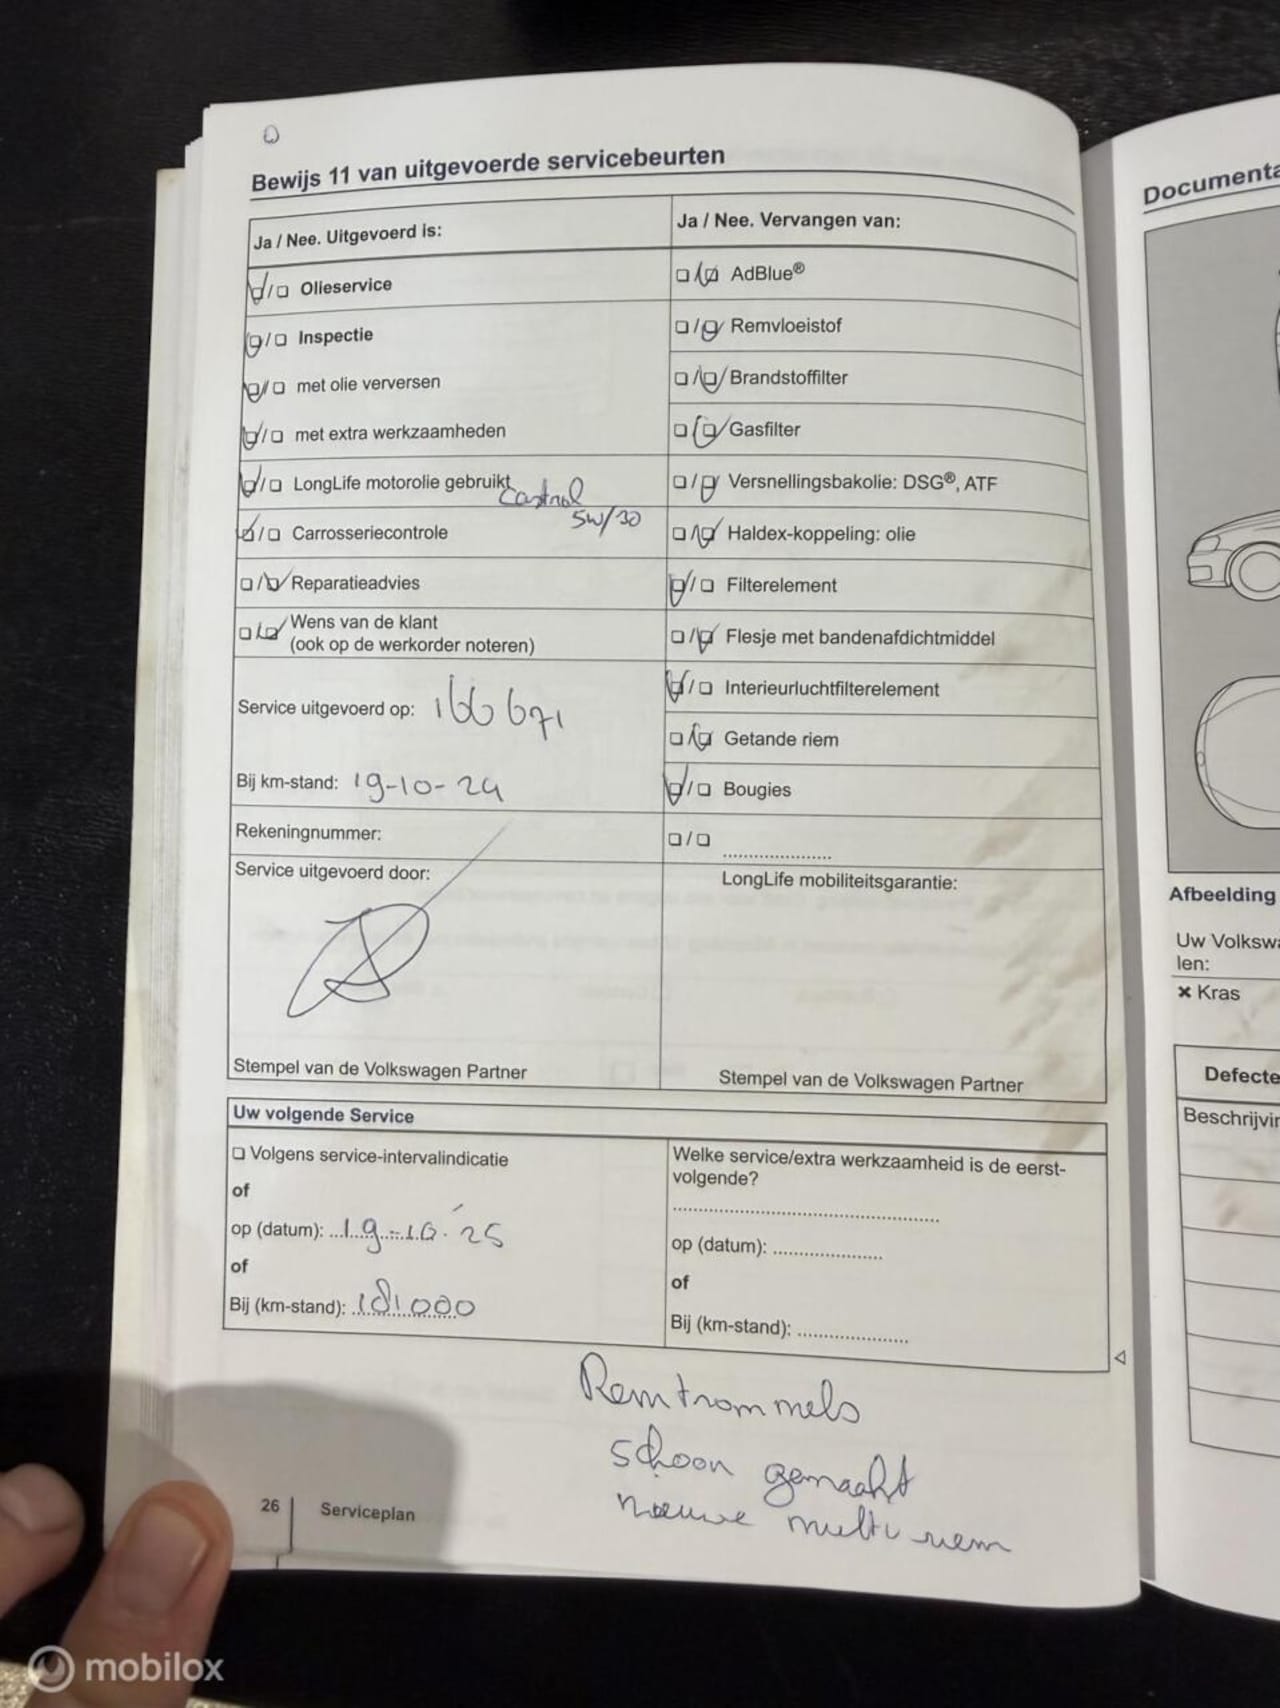 Bewijs 11 van uitgevoerde servicebeurten
Ja / Nee. Uitgevoerd is:
Olieservice
Inspectie
met olie verversen
met extra werkzaamheden
LongLife motorolie gebruikt Castrol
5W/30
Carrosseriecontrole
Reparatieadvies
Wens van de klant
(ook op de werkorder noteren)
Service uitgevoerd op: 166671
Bij km-stand: 19-10-24
Rekeningnummer:
Service uitgevoerd door:
Stempel van de Volkswagen Partner
Ja / Nee. Vervangen van:
AdBlue®
Remvloeistof
Brandstoffilter
Gasfilter
Versnellingsbakolie: DSG®, ATF
Haldex-koppeling: olie
Filterelement
Flesje met bandenafdichtmiddel
Interieurluchtfilterelement
Getande riem
Bougies
LongLife mobiliteitsgarantie:
Stempel van de Volkswagen Partner
Uw volgende Service
Volgens service-intervalindicatie
of
op (datum): 19-10-25
of
Bij (km-stand): 181000
Welke service/extra werkzaamheid is de eerst-
volgende?
op (datum):
of
Bij (km-stand):
Remtrommels
schoon gemaakt
nieuwe multi riem
26 Serviceplan
Documenta
Afbeelding
Uw Volkswa
len:
× Kras
Defecte
Beschrijvin
mobilox